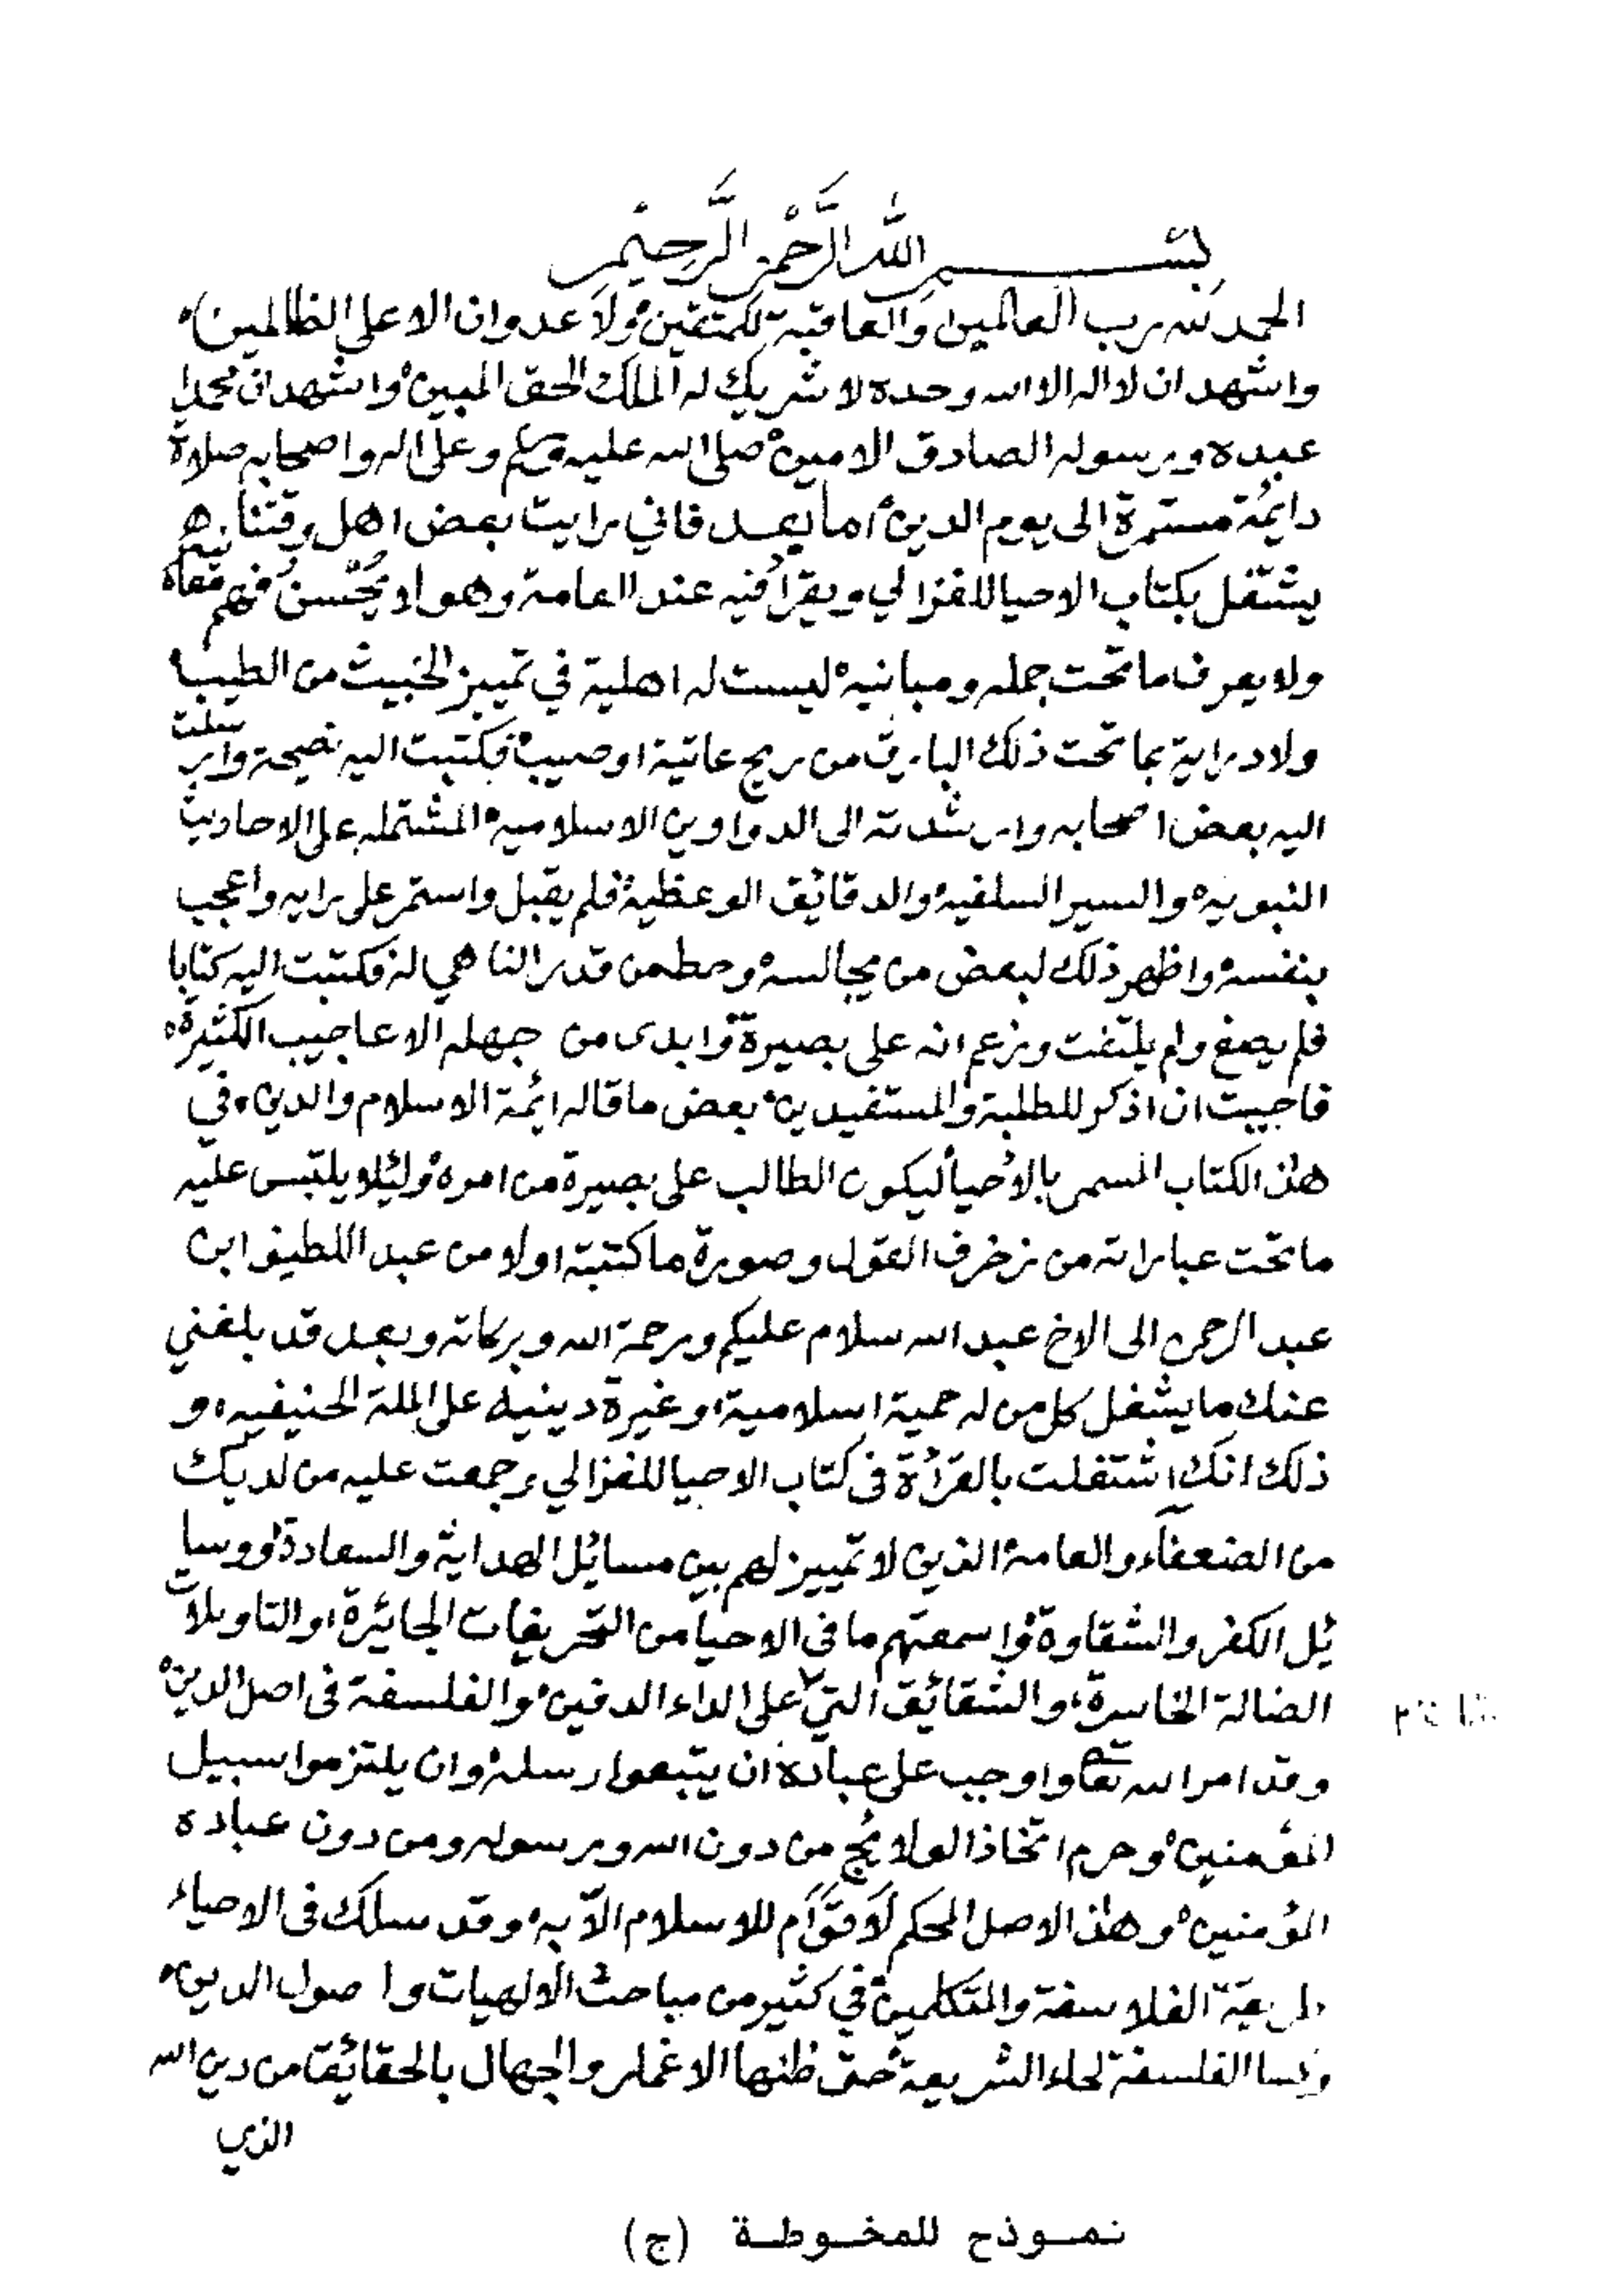 بسم الله الرحمن الرحيم
الحمد لله رب العالمين والعاقبة للمتقين ولا عدوان الا على الظالمين
واشهد ان لا اله الا الله وحده لا شريك له الملك الحق المبين واشهد ان محمدا
عبده ورسوله الصادق الامين صلى الله عليه وسلم وعلى اله واصحابه صلاة
دائمة مستمرة الى يوم الدين اما بعد فاني رايت بعض اهل وقتنا
يشتغل بكتاب الاحيا للغزالي ويقرا فيه عند العامة وهو لا يحسن فهم معانيه
ولا يعرف ما تحت جمله ومبانيه ليست له اهلية في تمييز الخبيث من الطيب
ولا دراية بما تحت ذلك البارق من ريح عاتية او صيب فكتبت اليه نصيحة وارسلت
اليه بعض اصحابه وارشدته الى الدواوين الاسلامية المشتمله على الاحاديث
النبويه والسير السلفيه والدقائق الوعظية فلم يقبل واستمر على رايه واعجب
بنفسه واظهر ذلك لبعض من يجالسه وحط من قدر الناهي له فكتبت اليه كتابا
فلم يصغ ولم يلتفت وزعم انه على بصيرة وابدى من جهله الاعاجيب الكثيرة
فاحببت ان اذكر للطلبة والمستفيدين بعض ما قاله ائمة الاسلام والدين في
هذا الكتاب المسمى بالاحيا ليكون الطالب على بصيرة من امره ولئلا يلتبس عليه
ما تحت عباراته من زخرف القول وصورة ما كتبته اولا من عبد اللطيف ابن
عبد الرحمن الى الاخ عبد الله سلام عليكم ورحمة الله وبركاته وبعد قد بلغني
عنك ما يشغل كل من له حمية اسلامية وغيرة دينيه على الملة الحنيفيه و
ذلك انك اشتغلت بالقرأة في كتاب الاحيا للغزالي وجمعت عليه من لديك
من الضعفاء والعامة الذين لا تمييز لهم بين مسائل الهداية والسعادة ووسا
ئل الكفر والشقاوة واسمعتهم ما في الاحيا من التحريفات الجائرة والتاويلات
الضالة الخاسرة والشقائق التي على الداء الدفين والفلسفة في اصل الدين
وقد امر الله تعالى واوجب على عباده ان يتبعوا رسله وان يلتزموا سبيل
المؤمنين وحرم اتخاذ الولائج من دون الله ورسوله ومن دون عباده
المؤمنين وهذا الاصل المحكم لا قوام للاسلام الا به وقد سلك في الاحياء
طريقة الفلاسفة والمتكلمين في كثير من مباحث الالهيات واصول الدين
وكسا الفلسفة لحاء الشريعة حتى ظنها الاغمار والجهال بالحقائق من دين الله
الذي
نموذج للمخوطة (ج)